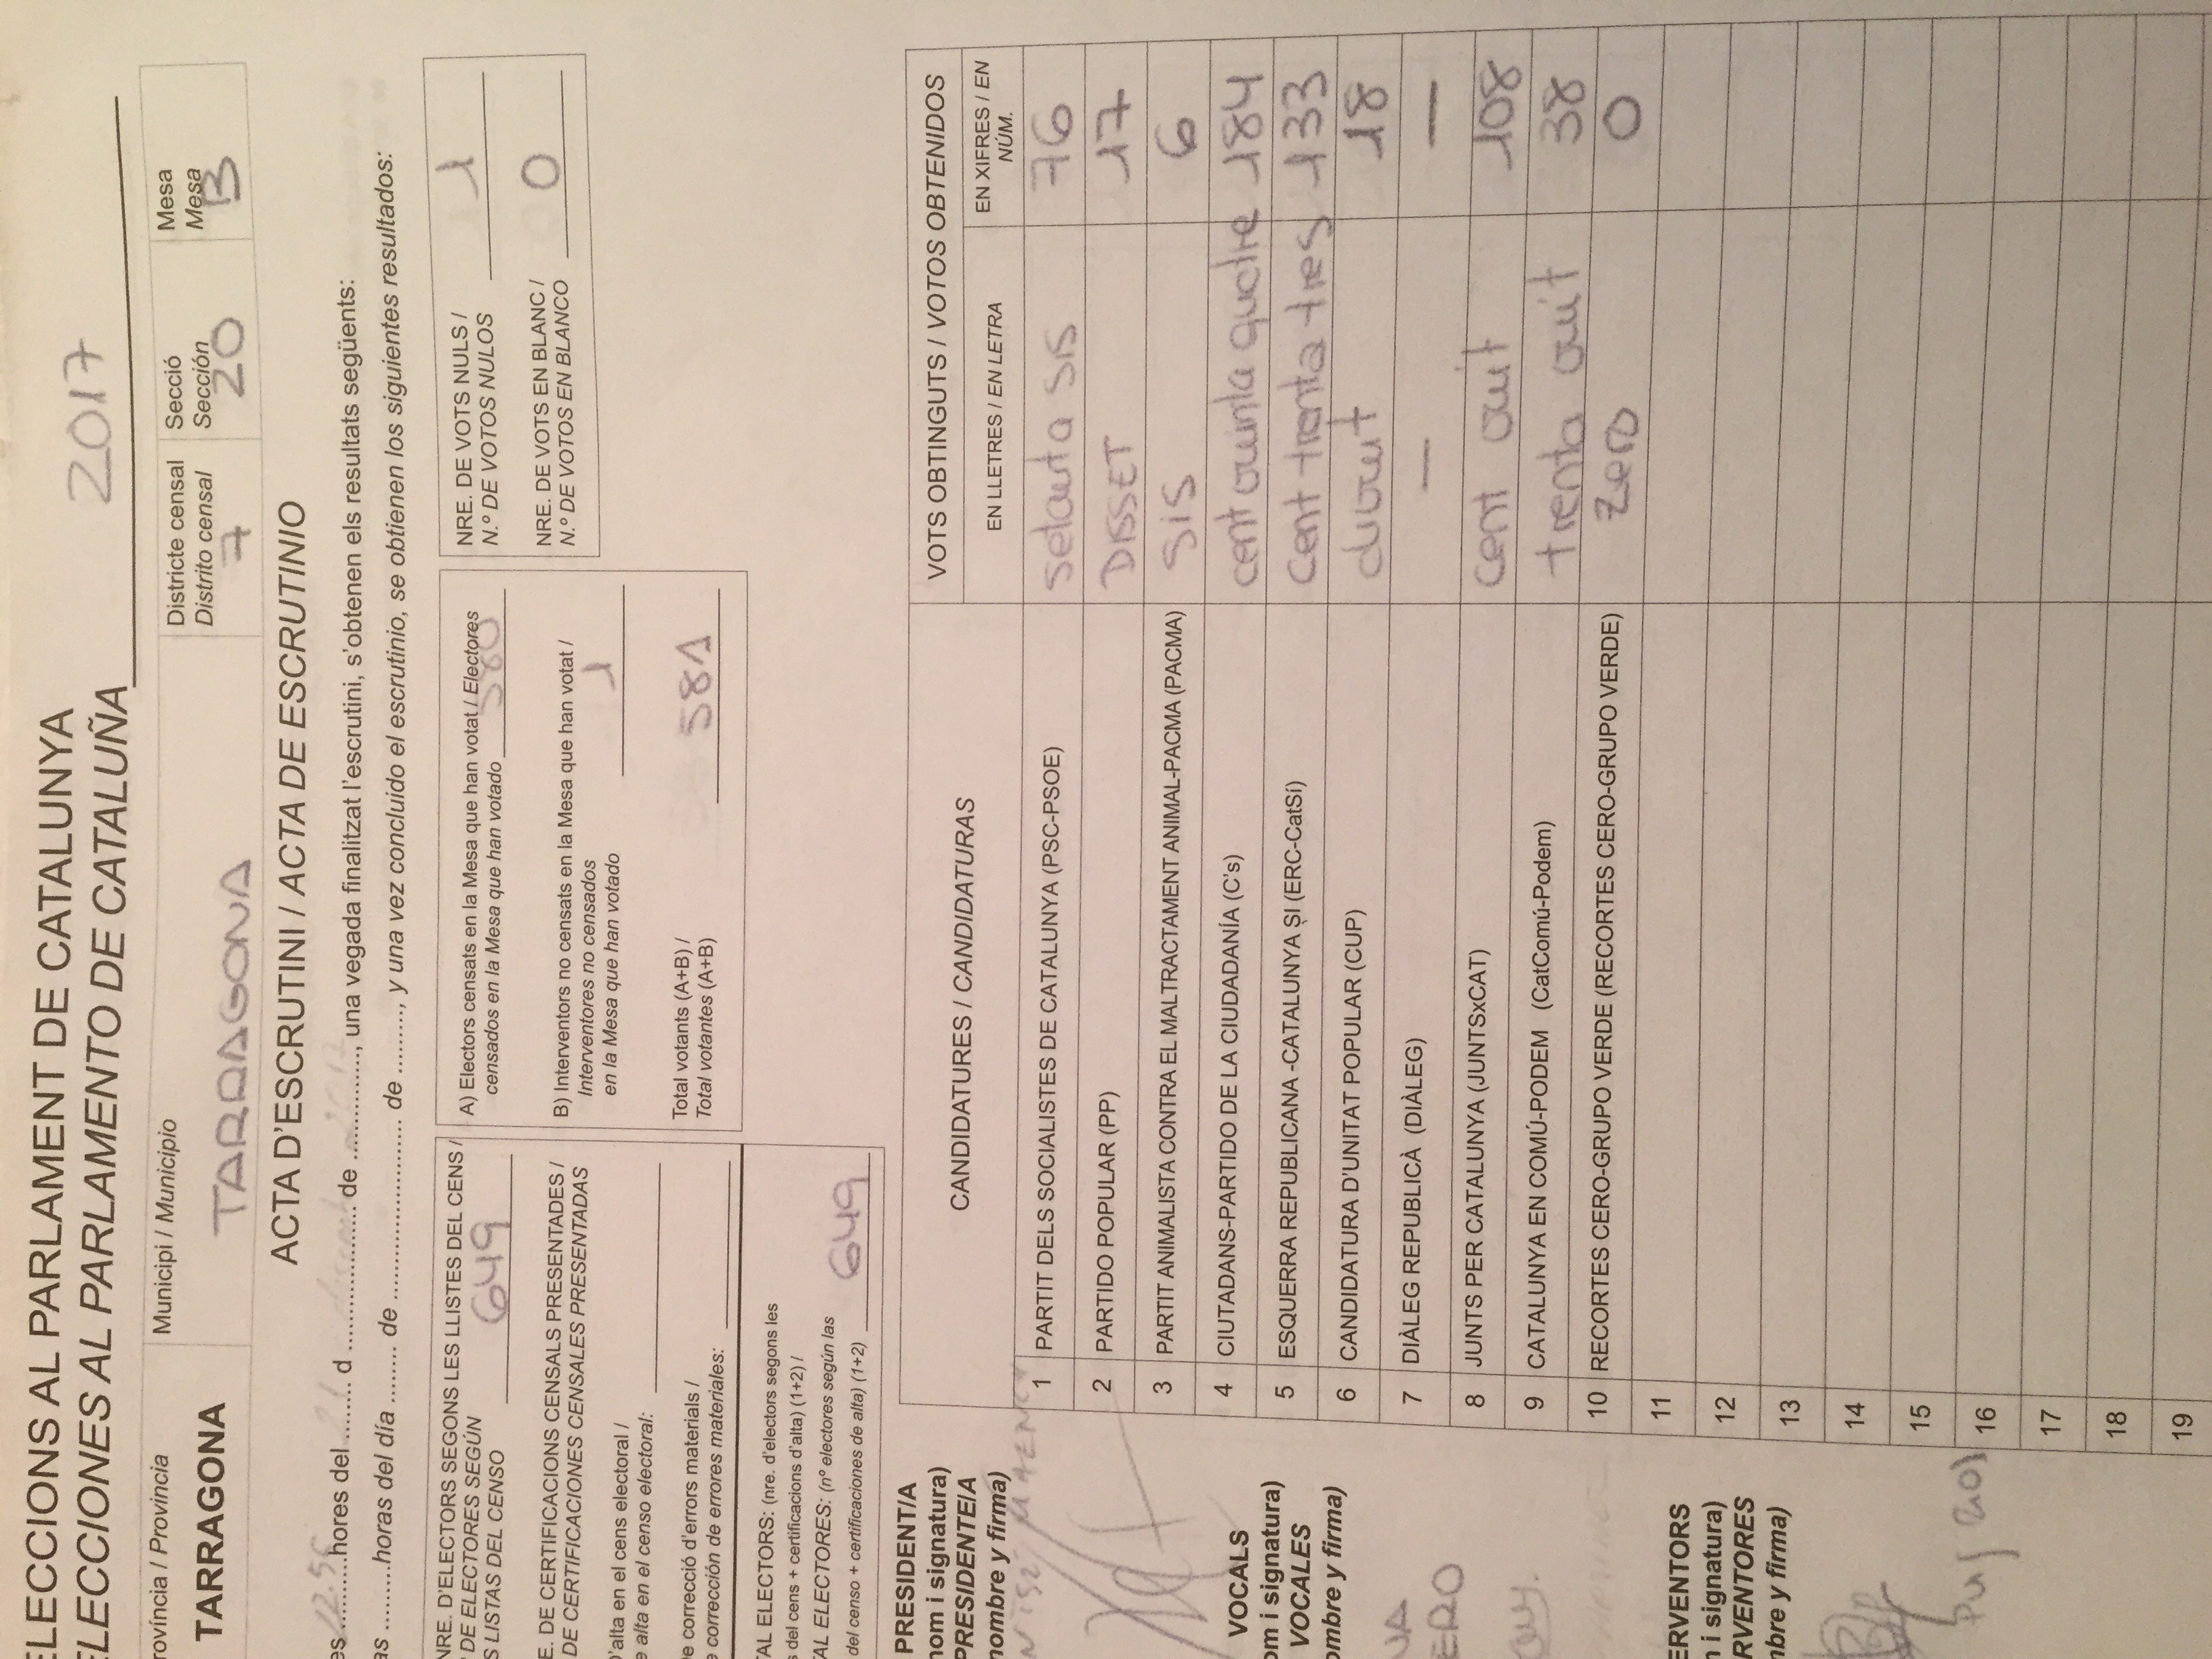 ELECCIONS AL PARLAMENT DE CATALUNYA
ELECCIONES AL PARLAMENTO DE CATALUÑA 2017
rovíncia / Provincia
TARRAGONA
Municipi / Municipio
TARRAGONA
Districte censal
Distrito censal
7
Secció
Sección
20
Mesa
Mesa
B
ACTA D'ESCRUTINI / ACTA DE ESCRUTINIO
es 12.56 hores del 21 d ..................... de 2017, una vegada finalitzat l'escrutini, s'obtenen els resultats següents:
as .........horas del día ........ de .......................... de ........., y una vez concluido el escrutinio, se obtienen los siguientes resultados:
NRE. D'ELECTORS SEGONS LES LLISTES DEL CENS /
DE ELECTORES SEGÚN
S LISTAS DEL CENSO 649
E. DE CERTIFICACIONS CENSALS PRESENTADES /
DE CERTIFICACIONES CENSALES PRESENTADAS
D'alta en el cens electoral /
e alta en el censo electoral:
e correcció d'errors materials /
e corrección de errores materiales:
TAL ELECTORS: (nre. d'electors segons les
s del cens + certificacions d'alta) (1+2) /
TAL ELECTORES: (nº electores según las
del censo + certificaciones de alta) (1+2) 649
A) Electors censats en la Mesa que han votat / Electores
censados en la Mesa que han votado 580
B) Interventors no censats en la Mesa que han votat /
Interventores no censados
en la Mesa que han votado 1
Total votants (A+B) /
Total votantes (A+B) 581
NRE. DE VOTS NULS /
N.º DE VOTOS NULOS 1
NRE. DE VOTS EN BLANC /
N.º DE VOTOS EN BLANCO 0
PRESIDENT/A
nom i signatura)
PRESIDENTE/A
nombre y firma)
VOCALS
om i signatura)
VOCALES
ombre y firma)
NA
ERO
ERVENTORS
n i signatura)
RVENTORES
mbre y firma)
CANDIDATURES / CANDIDATURAS
VOTS OBTINGUTS / VOTOS OBTENIDOS
EN LLETRES / EN LETRA
EN XIFRES / EN
NÚM.
1 PARTIT DELS SOCIALISTES DE CATALUNYA (PSC-PSOE) setanta sis 76
2 PARTIDO POPULAR (PP) DISSET 17
3 PARTIT ANIMALISTA CONTRA EL MALTRACTAMENT ANIMAL-PACMA (PACMA) sis 6
4 CIUTADANS-PARTIDO DE LA CIUDADANÍA (C's) cent vuinta quatre 184
5 ESQUERRA REPUBLICANA -CATALUNYA SI (ERC-CatSí) cent trenta tres 133
6 CANDIDATURA D'UNITAT POPULAR (CUP) divuit 18
7 DIÀLEG REPUBLICÀ (DIÀLEG) — —
8 JUNTS PER CATALUNYA (JUNTSxCAT) cent vuit 108
9 CATALUNYA EN COMÚ-PODEM (CatComú-Podem) trenta vuit 38
10 RECORTES CERO-GRUPO VERDE (RECORTES CERO-GRUPO VERDE) Zero 0
11
12
13
14
15
16
17
18
19